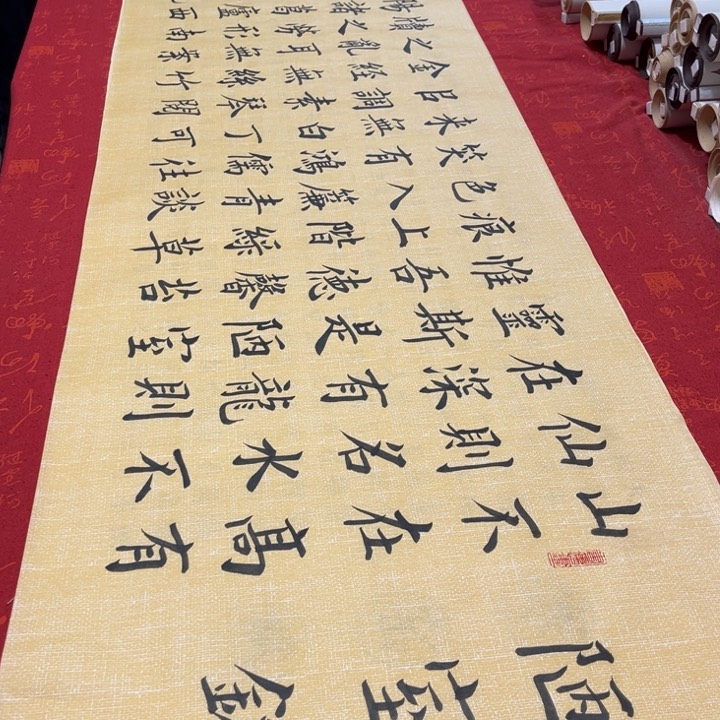 陋室銘
山不在高有
仙則名水不
在深有龍則
靈斯是陋室
惟吾德馨苔
痕上階綠草
色入簾青談
笑有鴻儒往
来無白丁可
吕調素琴閱
金經無絲竹
之亂耳無案
牘之勞形南
陽諸葛廬西